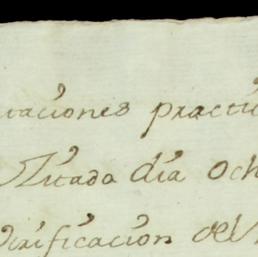 taciones practic
Zitado dia och
Verificacion del